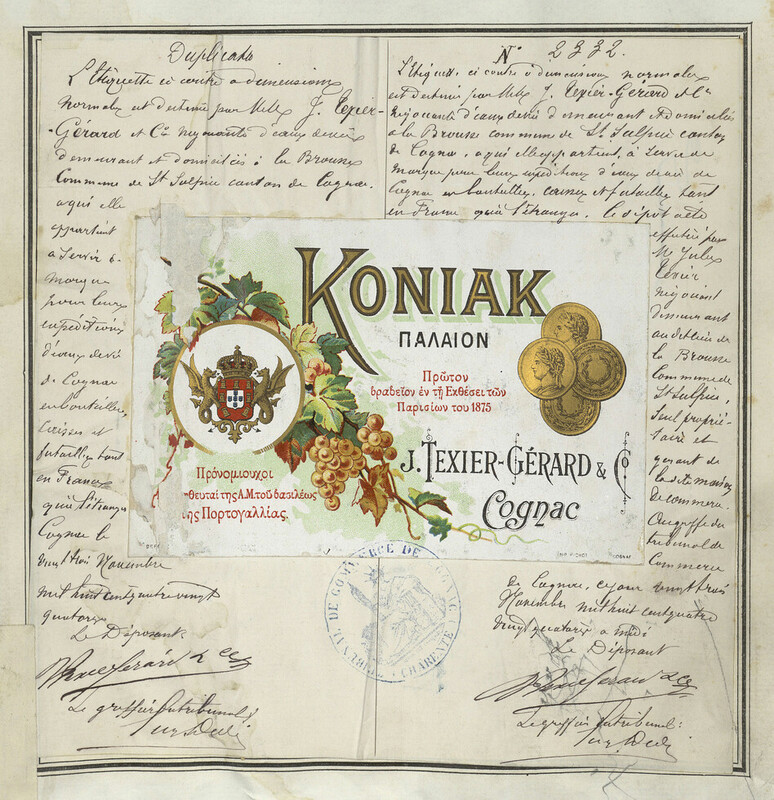 Duplicata
L'Etiquette ci contre a dimensions
normales est destinée par MM. J. Texier-
Gérard et Cie négociants d'eaux de vie
demeurant et domiciliés à la Brousse
Commune de St Sulpice canton de Cognac.
a qui elle
appartient
a Servir de
marque
pour leurs
expéditions
d'eaux de vie
de Cognac
en bouteilles,
caisses et
futailles tant
en France
qu'à l'étranger
Cognac le
vingt trois Novembre
mil huit cent quatre vingt
quatorze
Le Déposant
Le greffier du tribunal
No 2332.
L'étiquette ci contre a dimensions normales
est destinée par MM. J. Texier-Gérard et Cie
négociants d'eaux de vie demeurant et domiciliés
a la Brousse commune de St. Sulpice canton
de Cognac, a qui elle appartient, à servir de
marque pour leurs expéditions d'eaux de vie de
Cognac en bouteilles, caisses et futailles tant
en France qu'à l'étranger. le dépôt a été
effectué par
M Jules
Texier
négociant
demeurant
au dit lieu de
la Brousse
Commune de
St Sulpice,
Seul proprié-
taire et
gérant de
la dite maison
de commerce.
Au greffe du
tribunal de
Commerce
de Cognac, ce jour vingt trois
Novembre mil huit cent quatre
vingt quatorze a midi
Le Déposant
Le greffier du tribunal:
KONIAK
ΠΑΛΑΙΟΝ
Πρῶτον
βραβεῖον ἐν τῇ Ἐκθέσει τῶν
Παρισίων του 1875
J. TEXIER-GÉRARD & Co
Cognac
Πρόνομιουχοι
-θευταί της Α.Μ. τοῦ βασιλέως
ῆς Πορτογαλλίας.
TRIBUNAL DE COMMERCE DE COGNAC
CHARENTE